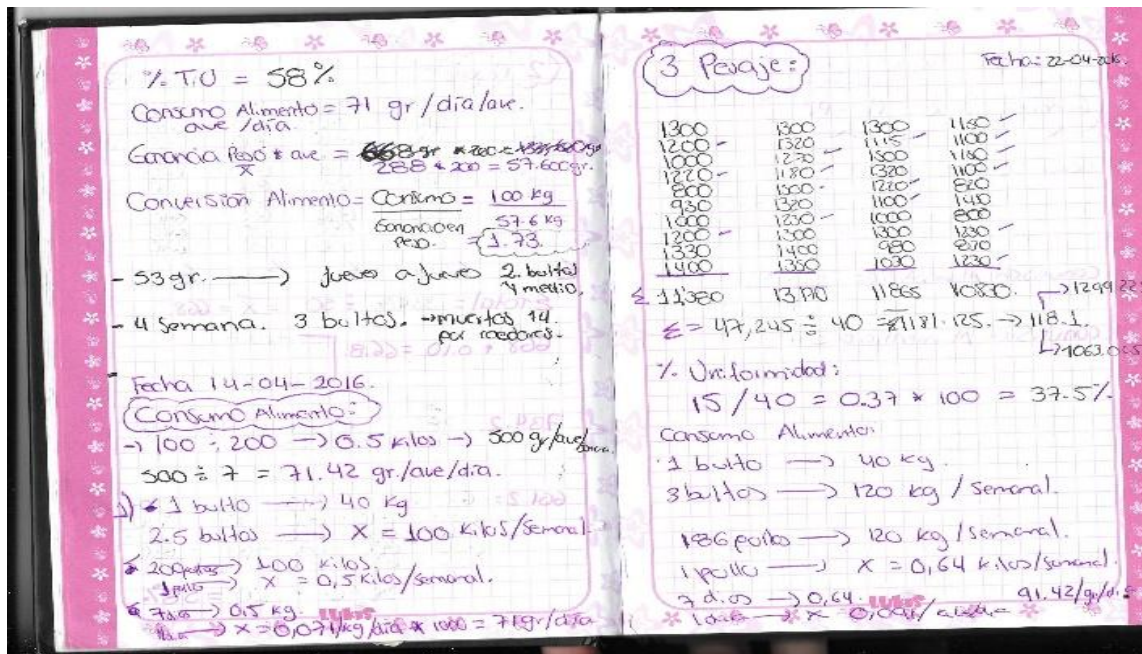 % T.U = 58%
Consumo Alimento = 71 gr/día/ave.
ave /día.
Ganancia Peso * ave =
X 288 * 200 = 57.600gr.
Conversión Alimento = Consumo = 100 kg
Ganancia en Peso. 57.6 kg
= 1.73
- 53gr. → jueves a jueves 2. bultos y medio.
- 4 Semana. 3 bultos. → muertos 14. por roedores.
Fecha 14-04-2016.
Consumo Alimento:
→ 100 ÷ 200 → 0.5 kilos → 500 gr/ave/
500 ÷ 7 = 71.42 gr./ave/día.
1) 1 bulto → 40 kg
2.5 bultos → X = 100 kilos/Semanal
200 → 100 kilos.
1 pollo → X = 0,5 kilos/semanal.
7 días → 0,5 kg.
→ X = 0,071/kg/día * 1000 = 71gr/día
3 Pesaje:
Fecha: 22-04-2016.
1300 1300 1300 1150
1200 - 1320 1115 - 1100 -
1000 1270 - 1500 1150 -
1220 - 1180 - 1320 1100 -
800 1300 - 1220 - 820
930 1320 1100 -
1000 1230 - 1000 800
1200 - 1300 1300 1230 -
1330 1400 980
1400 1350 1030 1230 -
Σ 11380 11865 10830. → 1299.22
Σ = 47,245 ÷ 40 = 1181.125. → 118.1
→ 1063.065
% Uniformidad:
15 / 40 = 0.37 * 100 = 37.5%
Consumo Alimento:
1 bulto → 40 kg.
3 bultos → 120 kg / Semanal.
186 pollos → 120 kg / Semanal.
1 pollo → X = 0,64 kilos/semanal.
7 días → 0,64. 91.42/gr/día
1 día → X